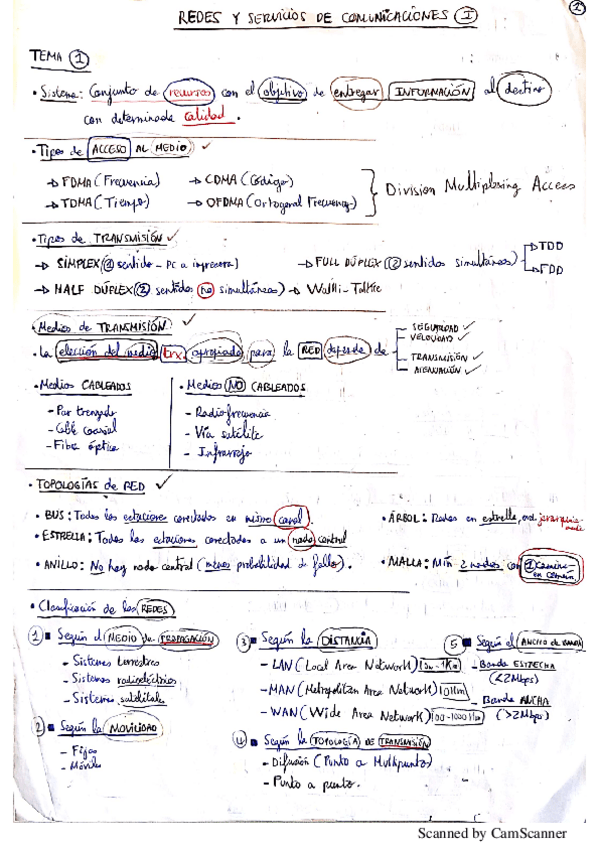 1
REDES Y SERVICIOS DE COMUNICACIONES I
TEMA 1
• Sistema: Conjunto de recursos con el objetivo de entregar INFORMACIÓN al destino
con determinada calidad.
• Tipos de ACCESO AL MEDIO ✓
→ FDMA (Frecuencia) → CDMA (Código)
→ TDMA (Tiempo) → OFDMA (Ortogonal Frequency)
Division Multiplexing Access
• Tipos de TRANSMISIÓN ✓
→ SIMPLEX (1 sentido - PC a impresora) → FULL DÚPLEX (2 sentidos simultáneos) → TDD
→ FDD
→ HALF DÚPLEX (2 sentidos no simultáneos) → Walki-Talkie
Medios de TRANSMISIÓN ✓
• La elección del medio trx. apropiado para la RED depende de
- SEGURIDAD ✓
- VELOCIDAD ✓
- TRANSMISIÓN ✓
- ATENUACIÓN ✓
• Medios CABLEADOS
- Par trenzado
- Cable coaxial
- Fibra óptica
• Medios NO CABLEADOS
- Radiofrecuencia
- Vía satélite
- Infrarrojo
• TOPOLOGÍAS de RED ✓
• BUS: Todas las estaciones conectadas en mismo canal.
• ESTRELLA: Todas las estaciones conectadas a un nodo central
• ANILLO: No hay nodo central (menos probabilidad de fallo).
• ÁRBOL: Redes en estrella,
• MALLA: Mín 2 nodos con 1 camino
en común
• Clasificación de las REDES
1 Según el MEDIO de PROPAGACIÓN
- Sistemas terrestres
- Sistemas radioeléctricos
- Sistemas satelitales
2 Según la MOVILIDAD
- Fijas
- Móviles
3 Según la DISTANCIA
- LAN (Local Area Network) 10m-1Km
- MAN (Metropolitan Area Network) 10Km
- WAN (Wide Area Network) 100-1000 Km
4 Según la TOPOLOGÍA DE TRANSMISIÓN
- Difusión (Punto a Multipunto)
- Punto a punto.
5 Según el ANCHO DE BANDA
- Banda ESTRECHA
(<2Mbps)
- Banda ANCHA
(>2Mbps)
Scanned by CamScanner